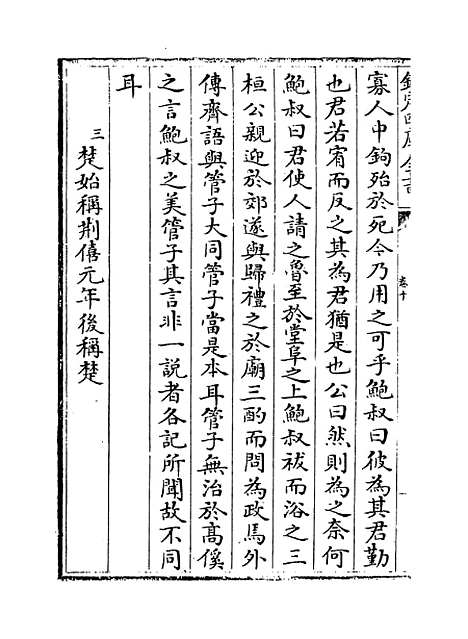 欽定四庫全書
卷十
寡人中鉤殆於死今乃用之可乎鮑叔曰彼為其君勤
也君若宥而反之其為君猶是也公曰然則為之奈何
鮑叔曰君使人請之魯至於堂阜之上鮑叔祓而浴之三
桓公親迎於郊遂與歸禮之於廟三酌而問為政焉外
傳齊語與管子大同管子當是本耳管子無治於高傒
之言鮑叔之美管子其言非一説者各記所聞故不同
耳
三楚始稱荆僖元年後稱楚